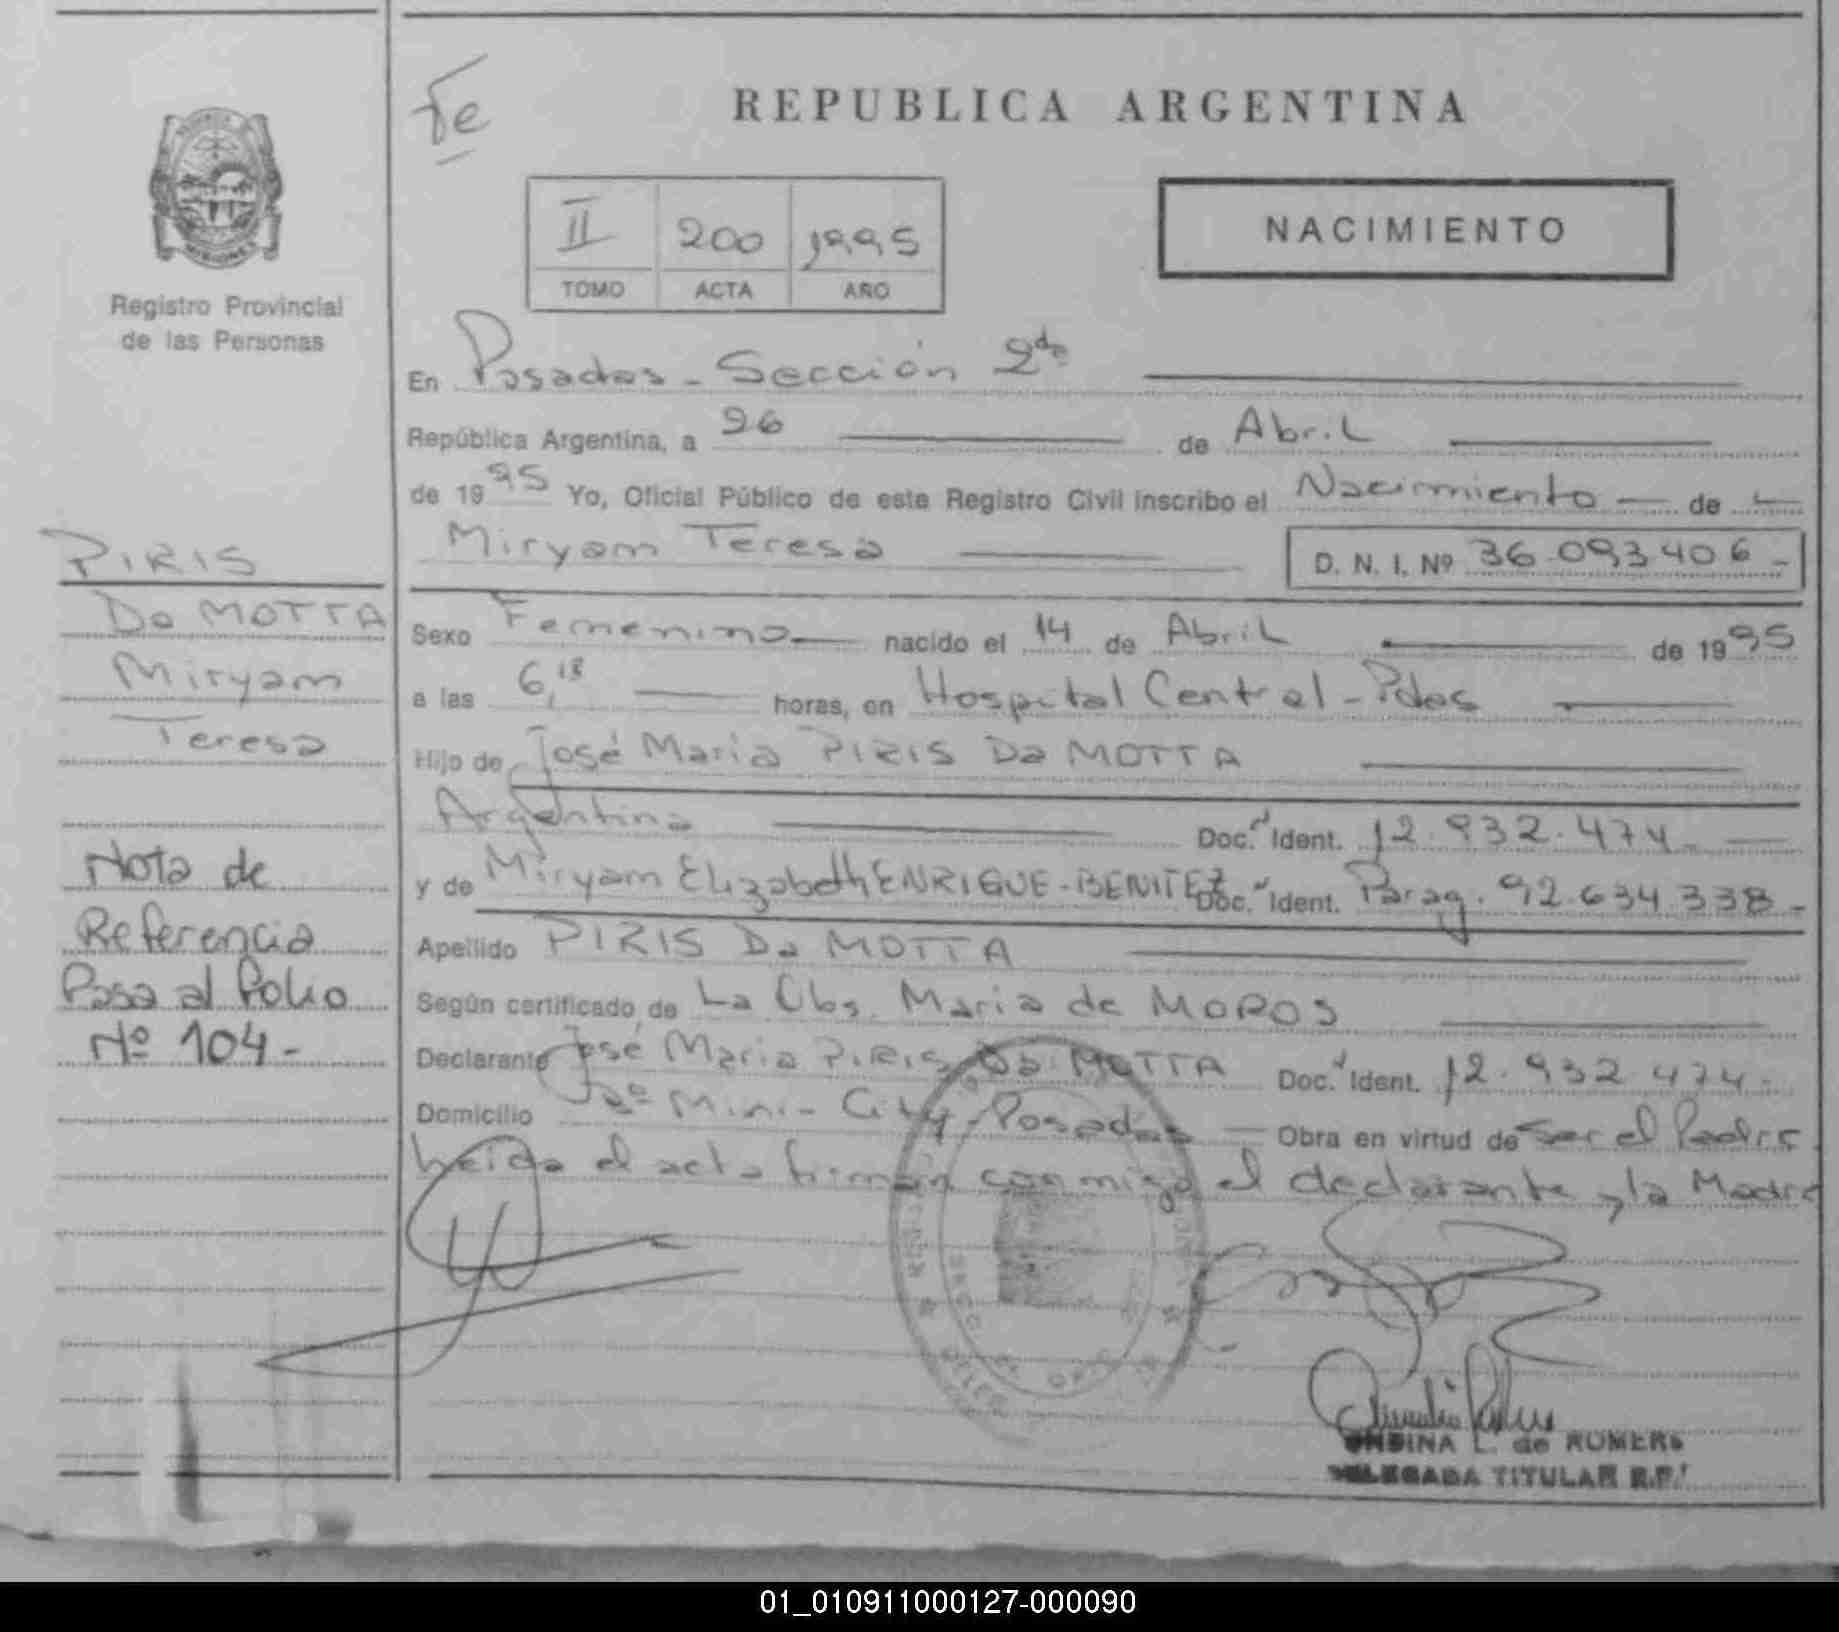 REPUBLICA ARGENTINA
MISIONES
Registro Provincial
de las Personas
II 200 1995
TOMO ACTA AÑO
NACIMIENTO
En Posadas - Sección 2da
República Argentina, a 26 de Abril
de 1995 Yo, Oficial Público de este Registro Civil inscribo el Nacimiento de
Miryam Teresa D. N. I. Nº 36.093.406 -
Sexo Femenino nacido el 14 de Abril de 1995
a las 6,18 horas, en Hospital Central - Pdas
Hijo de José Maria PIRIS Da MOTTA
Argentina Doc. Ident. 12.932.474 -
y de Miryam Elizabeth ENRIGUE - BENITEZ Doc. Ident. Parag. 92.634.338 -
Apellido PIRIS Da MOTTA
Según certificado de La Obs. Maria de MOROS
Declarante José Maria PIRIS Da MOTTA Doc. Ident. 12.932.474 -
Domicilio Mini - City - Posadas Obra en virtud de Ser el Padre
Leida el acta firman conmigo el declarante y la Madre
PIRIS
Da MOTTA
Miryam
Teresa
Nota de
Referencia
Pasa al Folio
Nº 104 -
L. de ROMERO
DELEGADA TITULAR R.P.
01_010911000127-000090